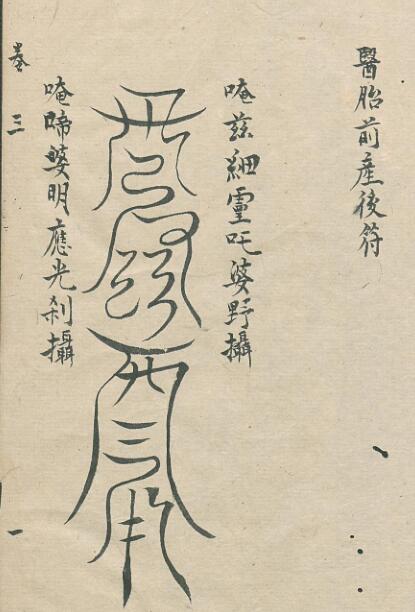 醫胎前產後符
唵茲細靈吒婆野攝
唵啼婆明應光刹攝
卷三
一